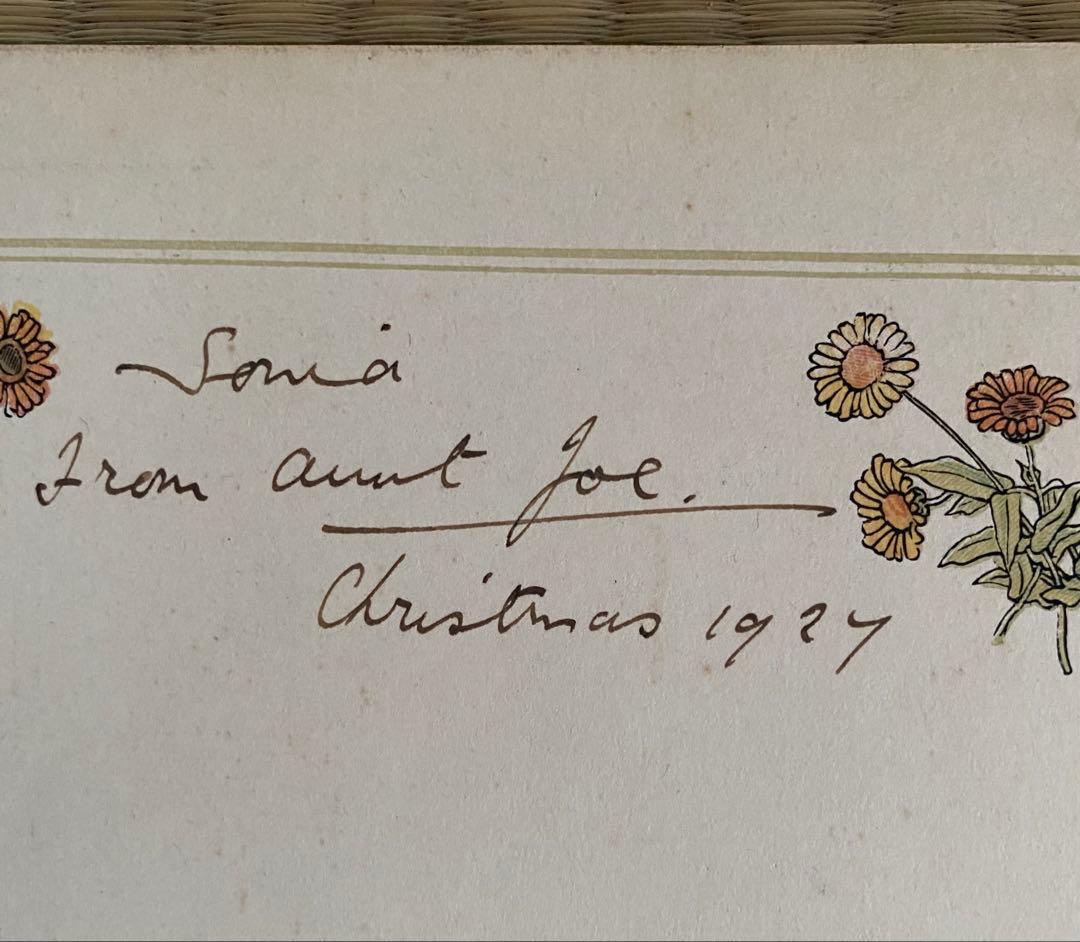 Sonia
From aunt Joe.
Christmas 1927